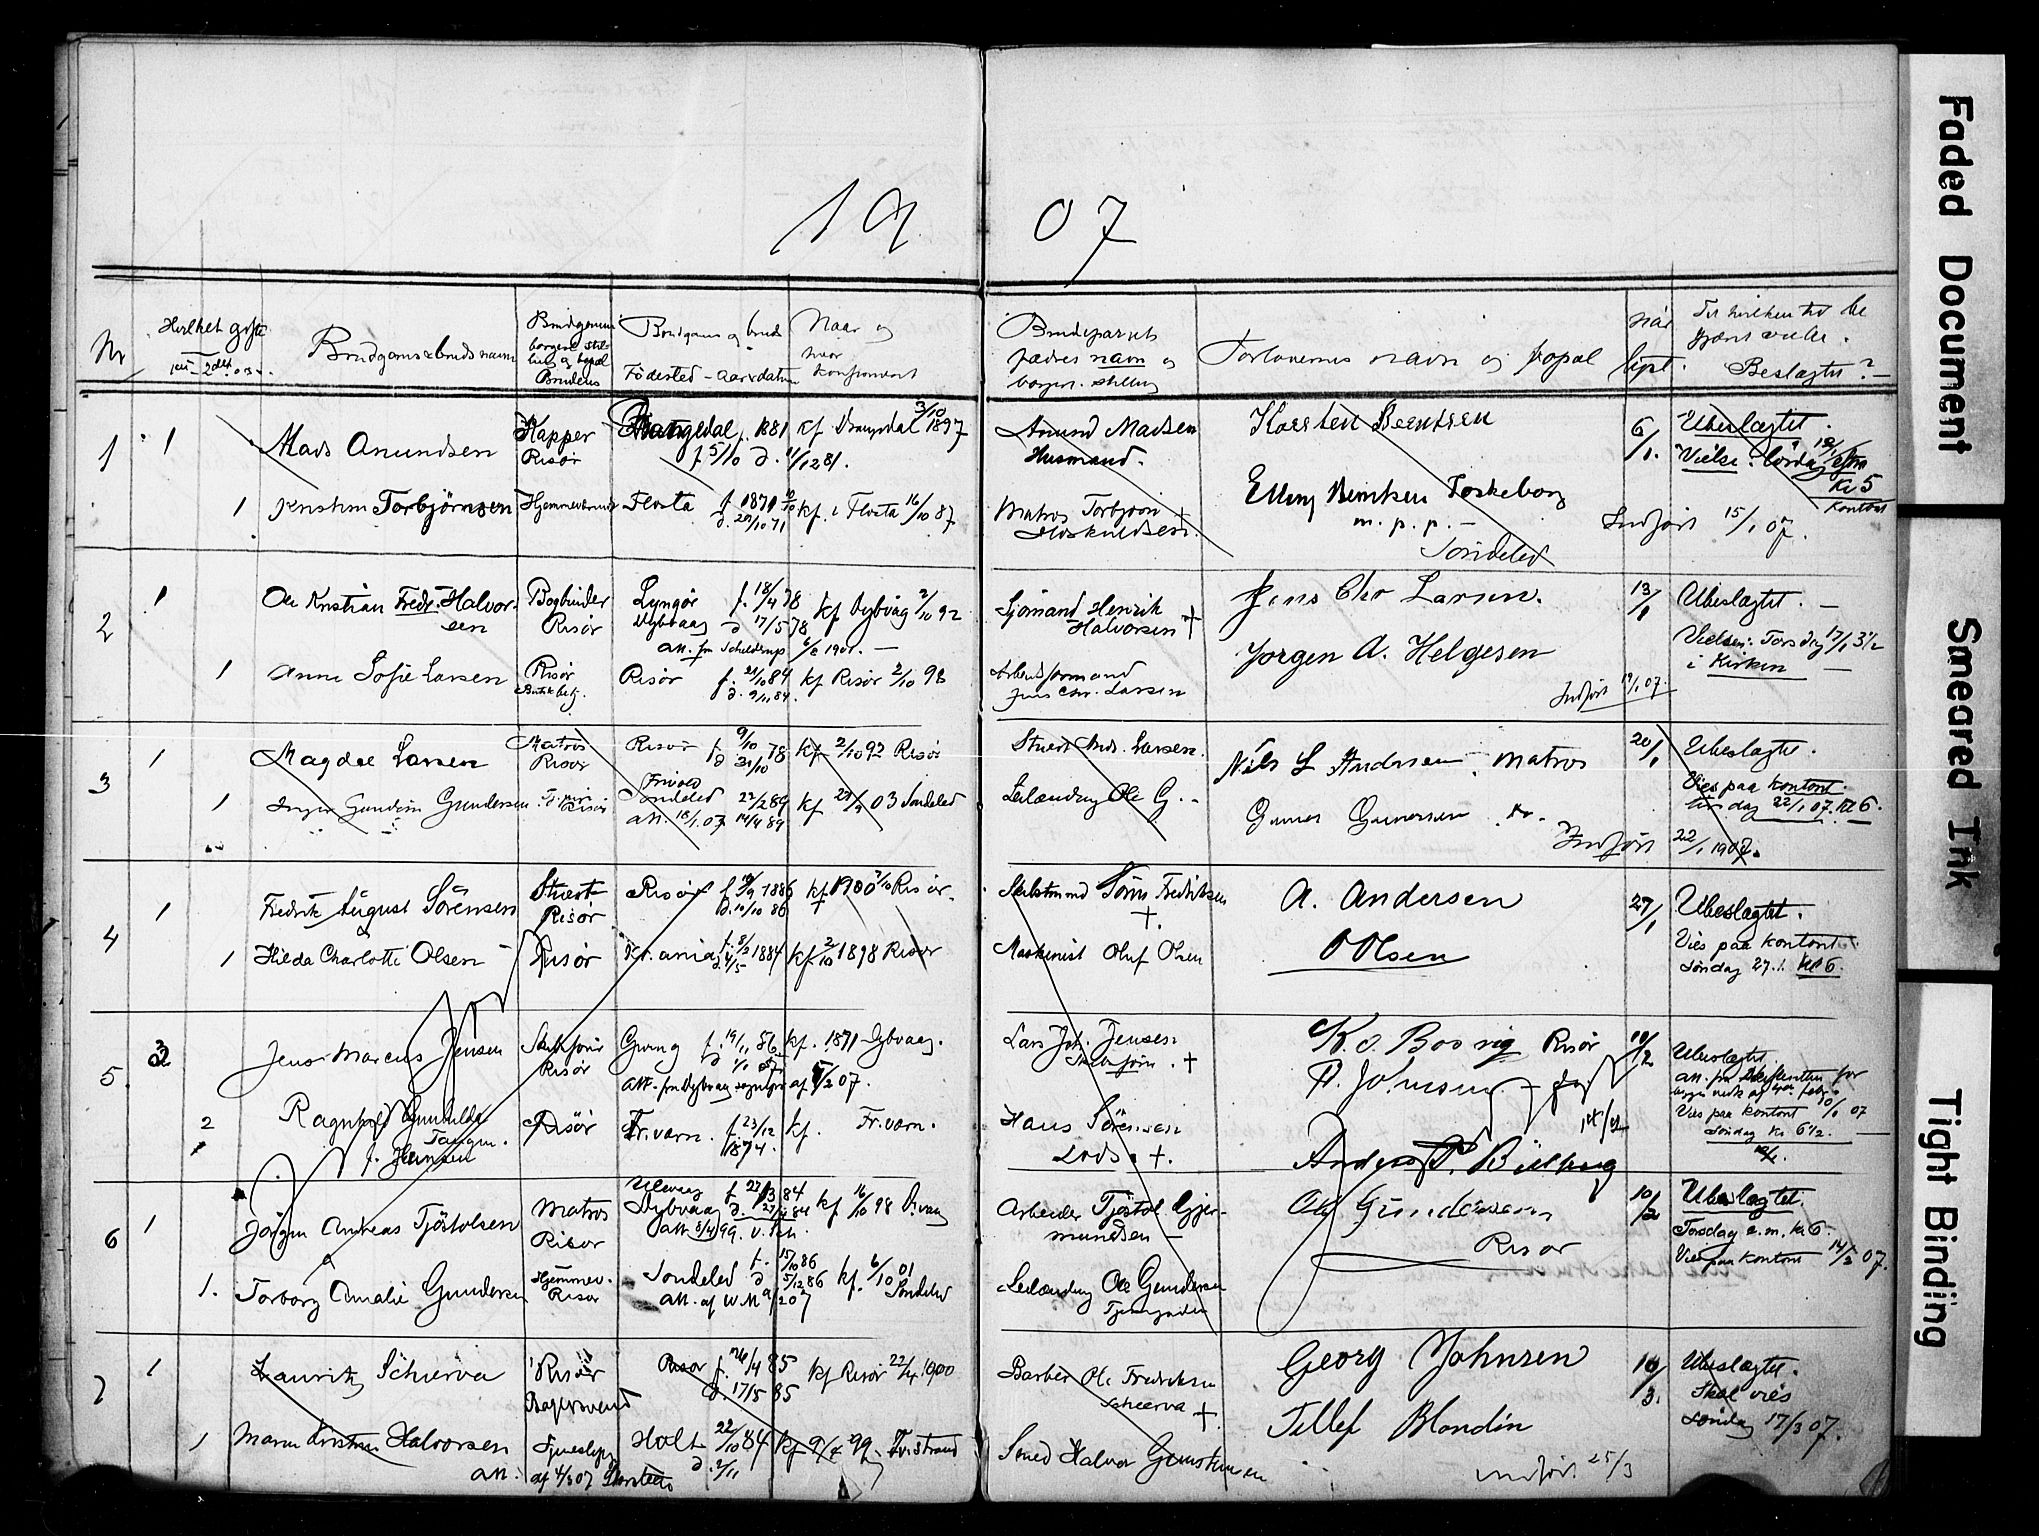 19 07
Nr
Hvilket gifte
1ste - 2det
Brudgoms & bruds navn
Brudgommens borgerl. stilling og bopæl
Brudens
Brudgoms og bruds
Födested - Aar & datum
Naar og hvor konfirmeret
Brudeparrets fædres navn og borgerl. stilling
Forlovernes navn og bopæl
når lyst.
Til hvilken tid be gjæres vielse.
Beslægtet? -
1
1
Mads Anundsen
Kapper
Risør
Drangedal f. 1881
f. 5/10 d. 11/12 81.
kf Drangedal 3/10 1897
Anund Madsen
Husmand.
Karsten Berntsen
6/1.
Ubeslægtet.
Vielse: lördag 12/1
Kl 5
Kontor
1
Kristine Torbjörnsen
Hjemmeværende
Flosta
f. 1871
d. 29/10 71
kf. i Flosta 16/10 87
Matros Torbjörn +
Hoskuldsen.
Elling Berntsen Toskeborg
m. p. p. -
Söndeled
Indfört 15/1 07.
2
1
Ole Kristian Fredr. Halvorsen
Bogbinder
Risör
Lyngör f. 18/4 78
Dybvaag d 17/5 78
kf Dybvåg 2/10 92
Sjömand Henrik
Halvorsen +
Jens Chr Larsen.
13/1
Ubeslægtet. -
Vielsen: Torsdag 17/1 3½
i Kirken -
1
Anna Sofie Larsen
Risör
Butikbetj.
Risör f. 21/10 84
d. 9/11 84.
kf Risör 2/10 98
Arbeidsformand
Jens Chr. Larsen
Jorgen A. Helgesen
Indfört 19/1 07.
3
1
Magdal Larsen
Matros
Risør
Risør f 9/10 78
d 31/10
kf 2/10 92 Risör
Stuert Ands. Larsen.
Nils L Andersen, matros
20/1
Ubeslægtet.
Vies paa kontoret
tirsdag 22/1 07. Kl 6.
1
Inger Gundine Gundersen
Risör
Söndeled 22/2 89
att. 18/1. 07 14/4 89
kf 03 Söndeled
Leilænding Ole G. -
Gunder Gundersen
Indfört 22/1 1907.
4
1
Fredrik August Sörensen
Stuert
Risör
Risör f 19/9 1886
d. 10/10 86
kf. 1900 7/10 Risør
Skibstmmd Sörn Fredriksen
+
A. Andersen
27/1
Ubeslægtet.
Vies paa kontoret
Söndag 27.1. Kl 6.
1
Hilda Charlotte Olsen
Risör
Kr.ania f. 8/2 1884
d. 4/5
kf 2/10 1898 Risør
Maskinist Oluf Olsen
O Olsen
5
3
Jens Marcus Jensen
Skibsförer
Risör
Gjeving f. 19/11 56
kf. 1871 Dybvaag.
att. fra Dybvaag sognepr af 5/2 07.
Lars Joh. Jensen
Skibsförer. +
K. O. Boovig Risör
10/2
Ubeslægtet
Vies paa kontoret 10/1 07
Söndag kl 6½.
2
Ragnhild Gunhilda
Tangen.
f. Hansen
Risör
Fr.værn. f. 23/12
1874.
kf. Fr.værn.
Hans Sörensen
Lods. +.
Anders P. Bielberg
6
1
Jörgen Andreas Tjöstolsen
Matros
Risør
Dybvaag
att 5/4 99. v. Sch.
kf 16/10 98 D.vaag
Arbeider Tjöstol Gjermundsen -
Ole Gundersen
Risør
10/2
Ubeslægtet.
Torsdag e.m. kl 6.
Vies paa kontoret 14/2 07.
1.
Torborg Amalie Gundersen
Hjemmev.
Risør
Söndeled f. 15/10 86
d 5/12 86
kf. 6/10 01
Söndeled
Leilænding Ole Gundersen
7
1
Lauritz Schierva
Risør
Bagersvend
Risør f. 26/4 85
d. 17/5 85
kf Risør 22/4. 1900
Barber Ole Fredriksen
Schierva +
Georg Johnsen
10/3.
Ubeslægtet.
Skal vies
Söndag 17/3 07.
1
Maren Kristine Halvorsen
att. af 4/3 07
Holt 22/10 84
d. 2/11
kf 9/4 99. Tvedestrand
Smed Halvor
Tellef Blondin
indfört 25/3
Faded Document
Smeared Ink
Tight Binding